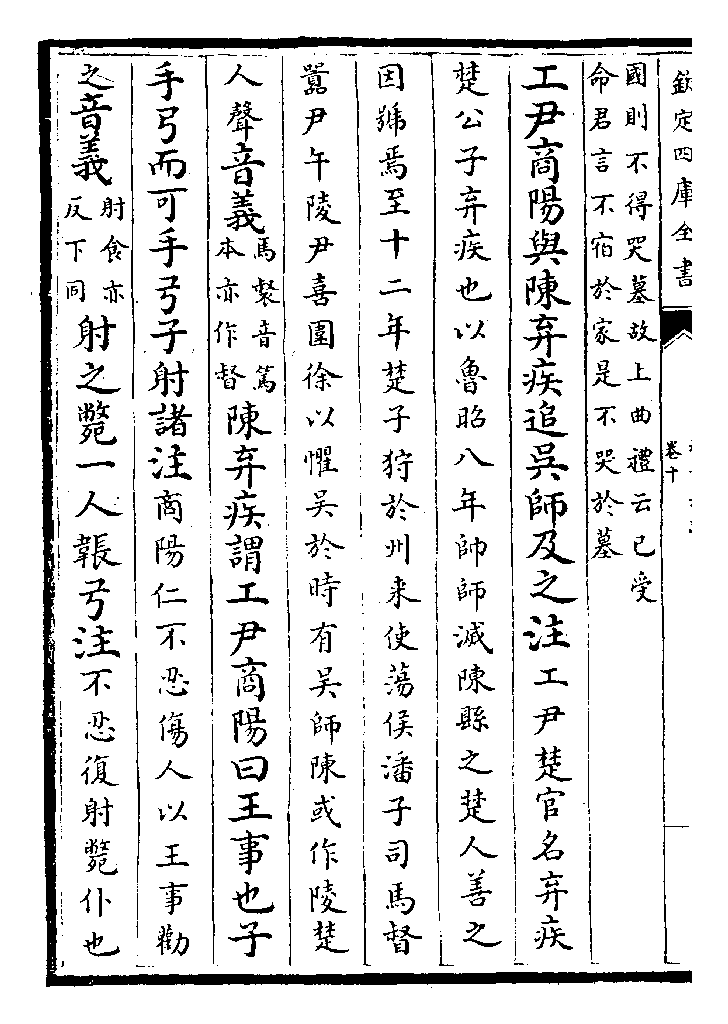 欽定四庫全書
卷十
國則不得哭墓故上曲禮云已受
命君言不宿於家是不哭於墓
工尹商陽與陳弃疾追吳師及之注工尹楚官名弃疾
楚公子弃疾也以魯昭八年帥師滅陳縣之楚人善之
因號焉至十二年楚子狩於州来使蕩侯潘子司馬督
嚚尹午陵尹喜圍徐以懼吳於時有吳師陳或作陵楚
人聲音義馬督音篤
本亦作督陳弃疾謂工尹商陽曰王事也子
手弓而可手弓子射諸注商陽仁不忍傷人以王事勸
之音義射食亦
反下同射之斃一人韔弓注不忍復射斃仆也